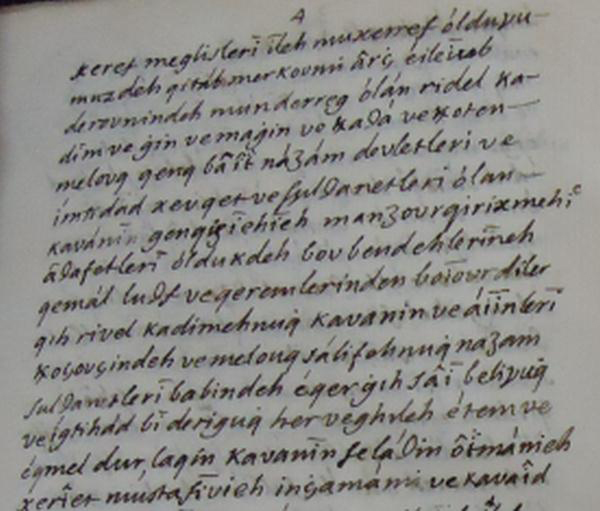 4
xeref meglisleri ileh muxerref olduγu-
muzdeh qitab merkoumi ârż eileieb
derounindeh munderreg olán ridel ka-
dim ve ġin ve maġin ve kaδá ve xoten-
meloug geng bâît názám devletleri ve
imtidad xevget ve sulδanetleri olan-
kavánin gengiziehieh manzour girixmehi
âδafetleri óldukdeh bou bendehlerineh
qemál luδf ve qeremlerinden boiourdiler
qih rivel kadimehnuġ kavanin ve áiinleri
xoṡousindeh ve meloug sálifehnuġ nazam
sulδanetleri babindeh égerġih sâi beliγuġ
ve igtihád bi deriguġ her veghileh étem ve
éqmel dur, laqin kavanin selaδin ôtmánieh
xeriet mustafivieh insamámi ve kavaîd